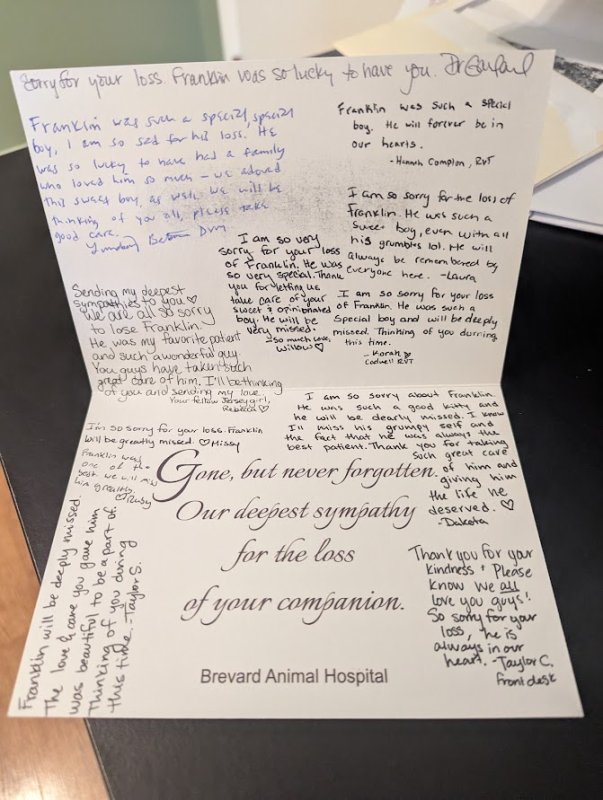 Sorry for your loss. Franklin was so lucky to have you. Dr
Franklin was such a special, special
boy, I am so sad for his loss. He
was so lucky to have had a family
who loved him so much - we adored
this sweet boy, as well. We will be
thinking of you all, please take
good care.
Franklin was such a special
boy. He will forever be in
our hearts.
- Hannah Compton, RVT
I am so sorry for the loss of
Franklin. He was such a
sweet boy, even with all
his grumbles lol. He will
always be remembered by
everyone here. -Laura
I am so very
sorry for your loss
of Franklin. He was
so very special. Thank
you for letting us
take care of your
sweet & opinionated
boy. He will be
very missed.
- So much love,
Willow ♡
I am so sorry for your loss
of Franklin. He was such a
special boy and will be deeply
missed. Thinking of you durring
this time.
- Korah
RVT
Sending my deepest
sympathies to you ♡
We are all so sorry
to lose Franklin.
He was my favorite patient
and such a wonderful guy.
You guys have taken such
great care of him. I'll be thinking
of you and sending my love.
Your fellow Jersey girl,
Rebecca ♡
I'm so sorry for your loss. Franklin
will be greatly missed. ♡ Missy
Franklin was
one of the
best we will miss
him greatly.
♡ Ruby
I am so sorry about Franklin
He was such a good kitty and
he will be dearly missed. I know
I'll miss his grumpy self and
the fact that he was always the
best patient. Thank you for taking
such great care
of him and
giving him
the life he
deserved. ♡
-Dakota
Gone, but never forgotten.
Our deepest sympathy
for the loss
of your companion.
Brevard Animal Hospital
Franklin will be deeply missed.
The love & care you gave him
was beautiful to be a part of.
Thinking of you during
this time. -Taylor S.
Thank you for your
kindness & Please
know we all
love you guys!
So sorry for your
loss, he is
always in our
heart. -Taylor C.
Front desk